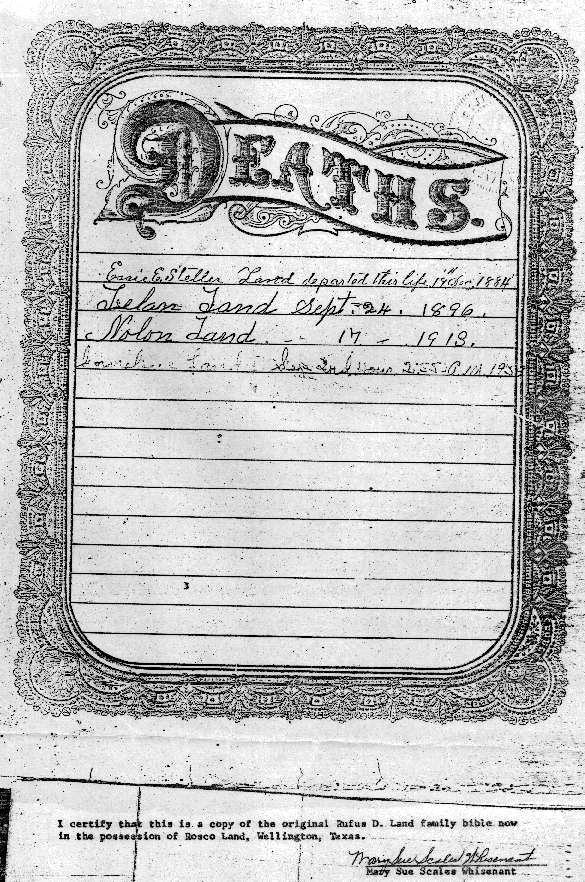 DEATHS.
Essie E. Steller Land departed this life 19" Dec, 1884
Lelan Land Sept. 24. 1896.
Nolon Land - 17 - 1913.
Land Sep 2nd hour
I certify that this is a copy of the original Rufus D. Land family bible now
in the possession of Rosco Land, Wellington, Texas.
Mary Sue Scales Whisenant
Mary Sue Scales Whisenant